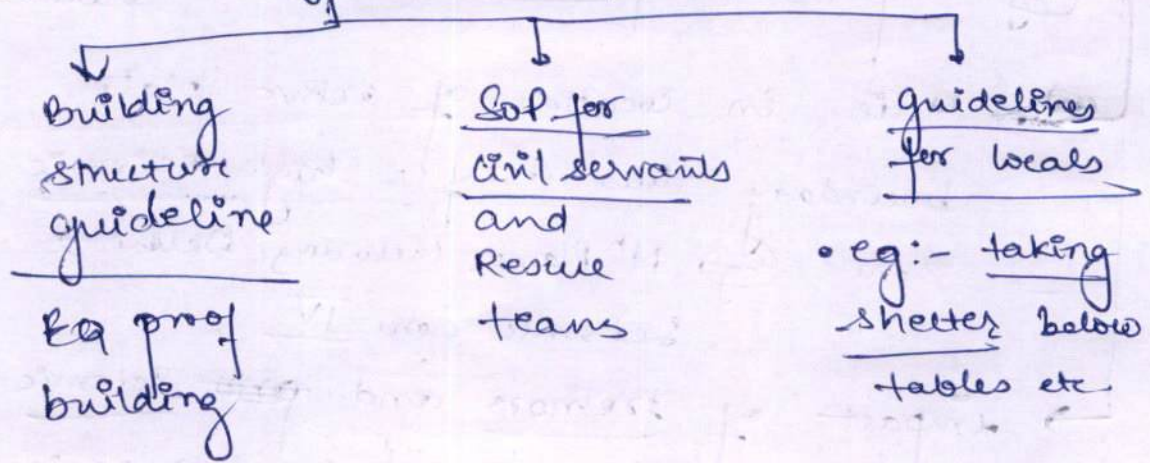 Building
structure
guideline
EQ proof
building
SoP for
civil servants
and
Rescue
teams
guidelines
for locals
• eg:- taking
shelter below
tables etc